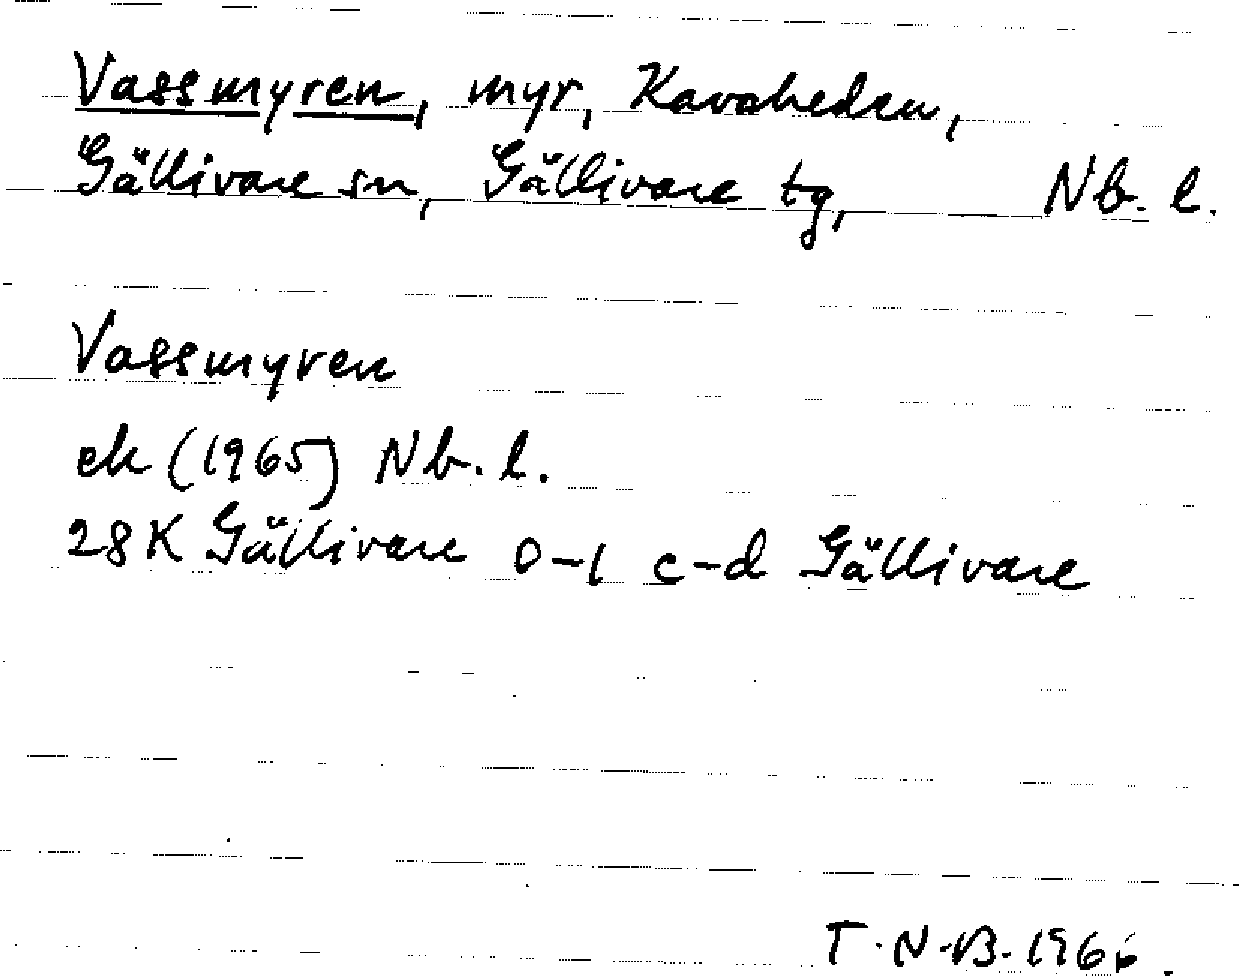 Vassmyren, myr, Kavaheden,
Gällivare sn, Gällivare tg, Nb. l.
Vassmyren
ek (1965) Nb. l.
28K Gällivare 0-1 c-d Gällivare
T.N.B. 1966.